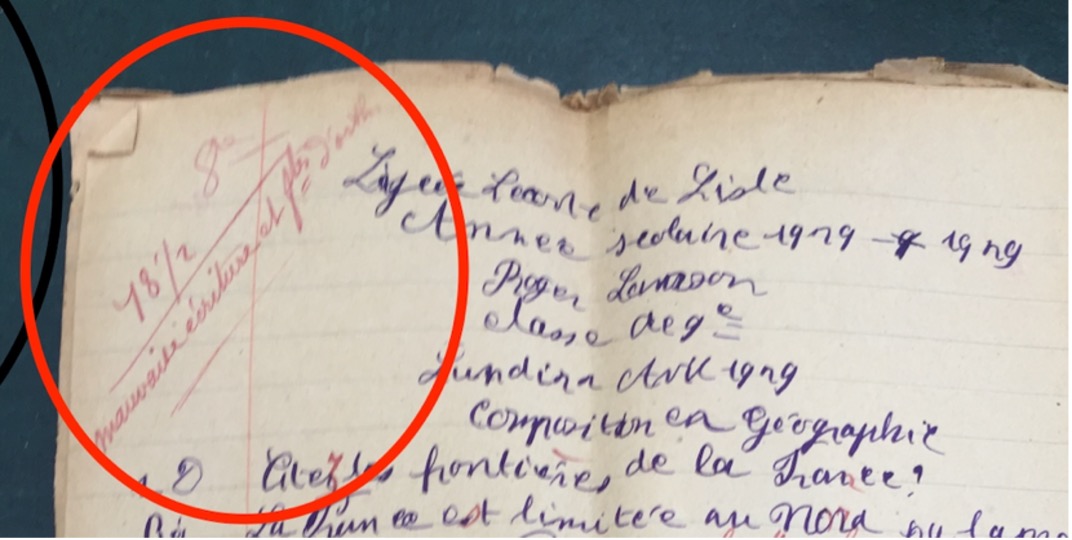 8e
18 1/2
mauvaise écriture et ftes d'orth.
Lycée Leconte de Lisle
Année scolaire 1929 - 1929
Roger
classe de 9e
Lundi 1929
Composition en Géographie
1. Citez les frontières de la France?
La France est limitée au Nord